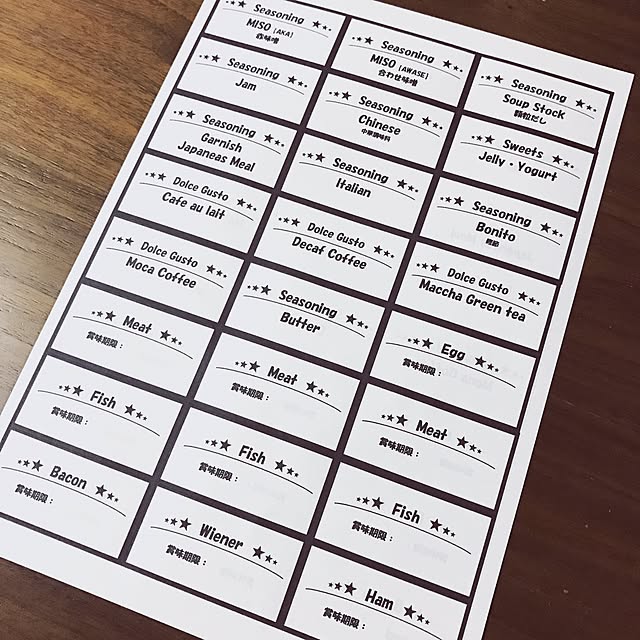 Seasoning
MISO [AKA]
赤味噌
Seasoning
MISO [AWASE]
合わせ味噌
Seasoning
Soup Stock
顆粒だし
Seasoning
Jam
Seasoning
Chinese
中華調味料
Sweets
Jelly・Yogurt
Seasoning
Garnish
Japaneas Meal
Seasoning
Italian
Seasoning
Bonito
鰹節
Dolce Gusto
Cafe au lait
Dolce Gusto
Decaf Coffee
Dolce Gusto
Maccha Green tea
Dolce Gusto
Moca Coffee
Seasoning
Butter
Egg
賞味期限：
Meat
賞味期限：
Meat
賞味期限：
Meat
賞味期限：
Fish
賞味期限：
Fish
賞味期限：
Fish
賞味期限：
Bacon
賞味期限：
Wiener
賞味期限：
Ham
賞味期限：